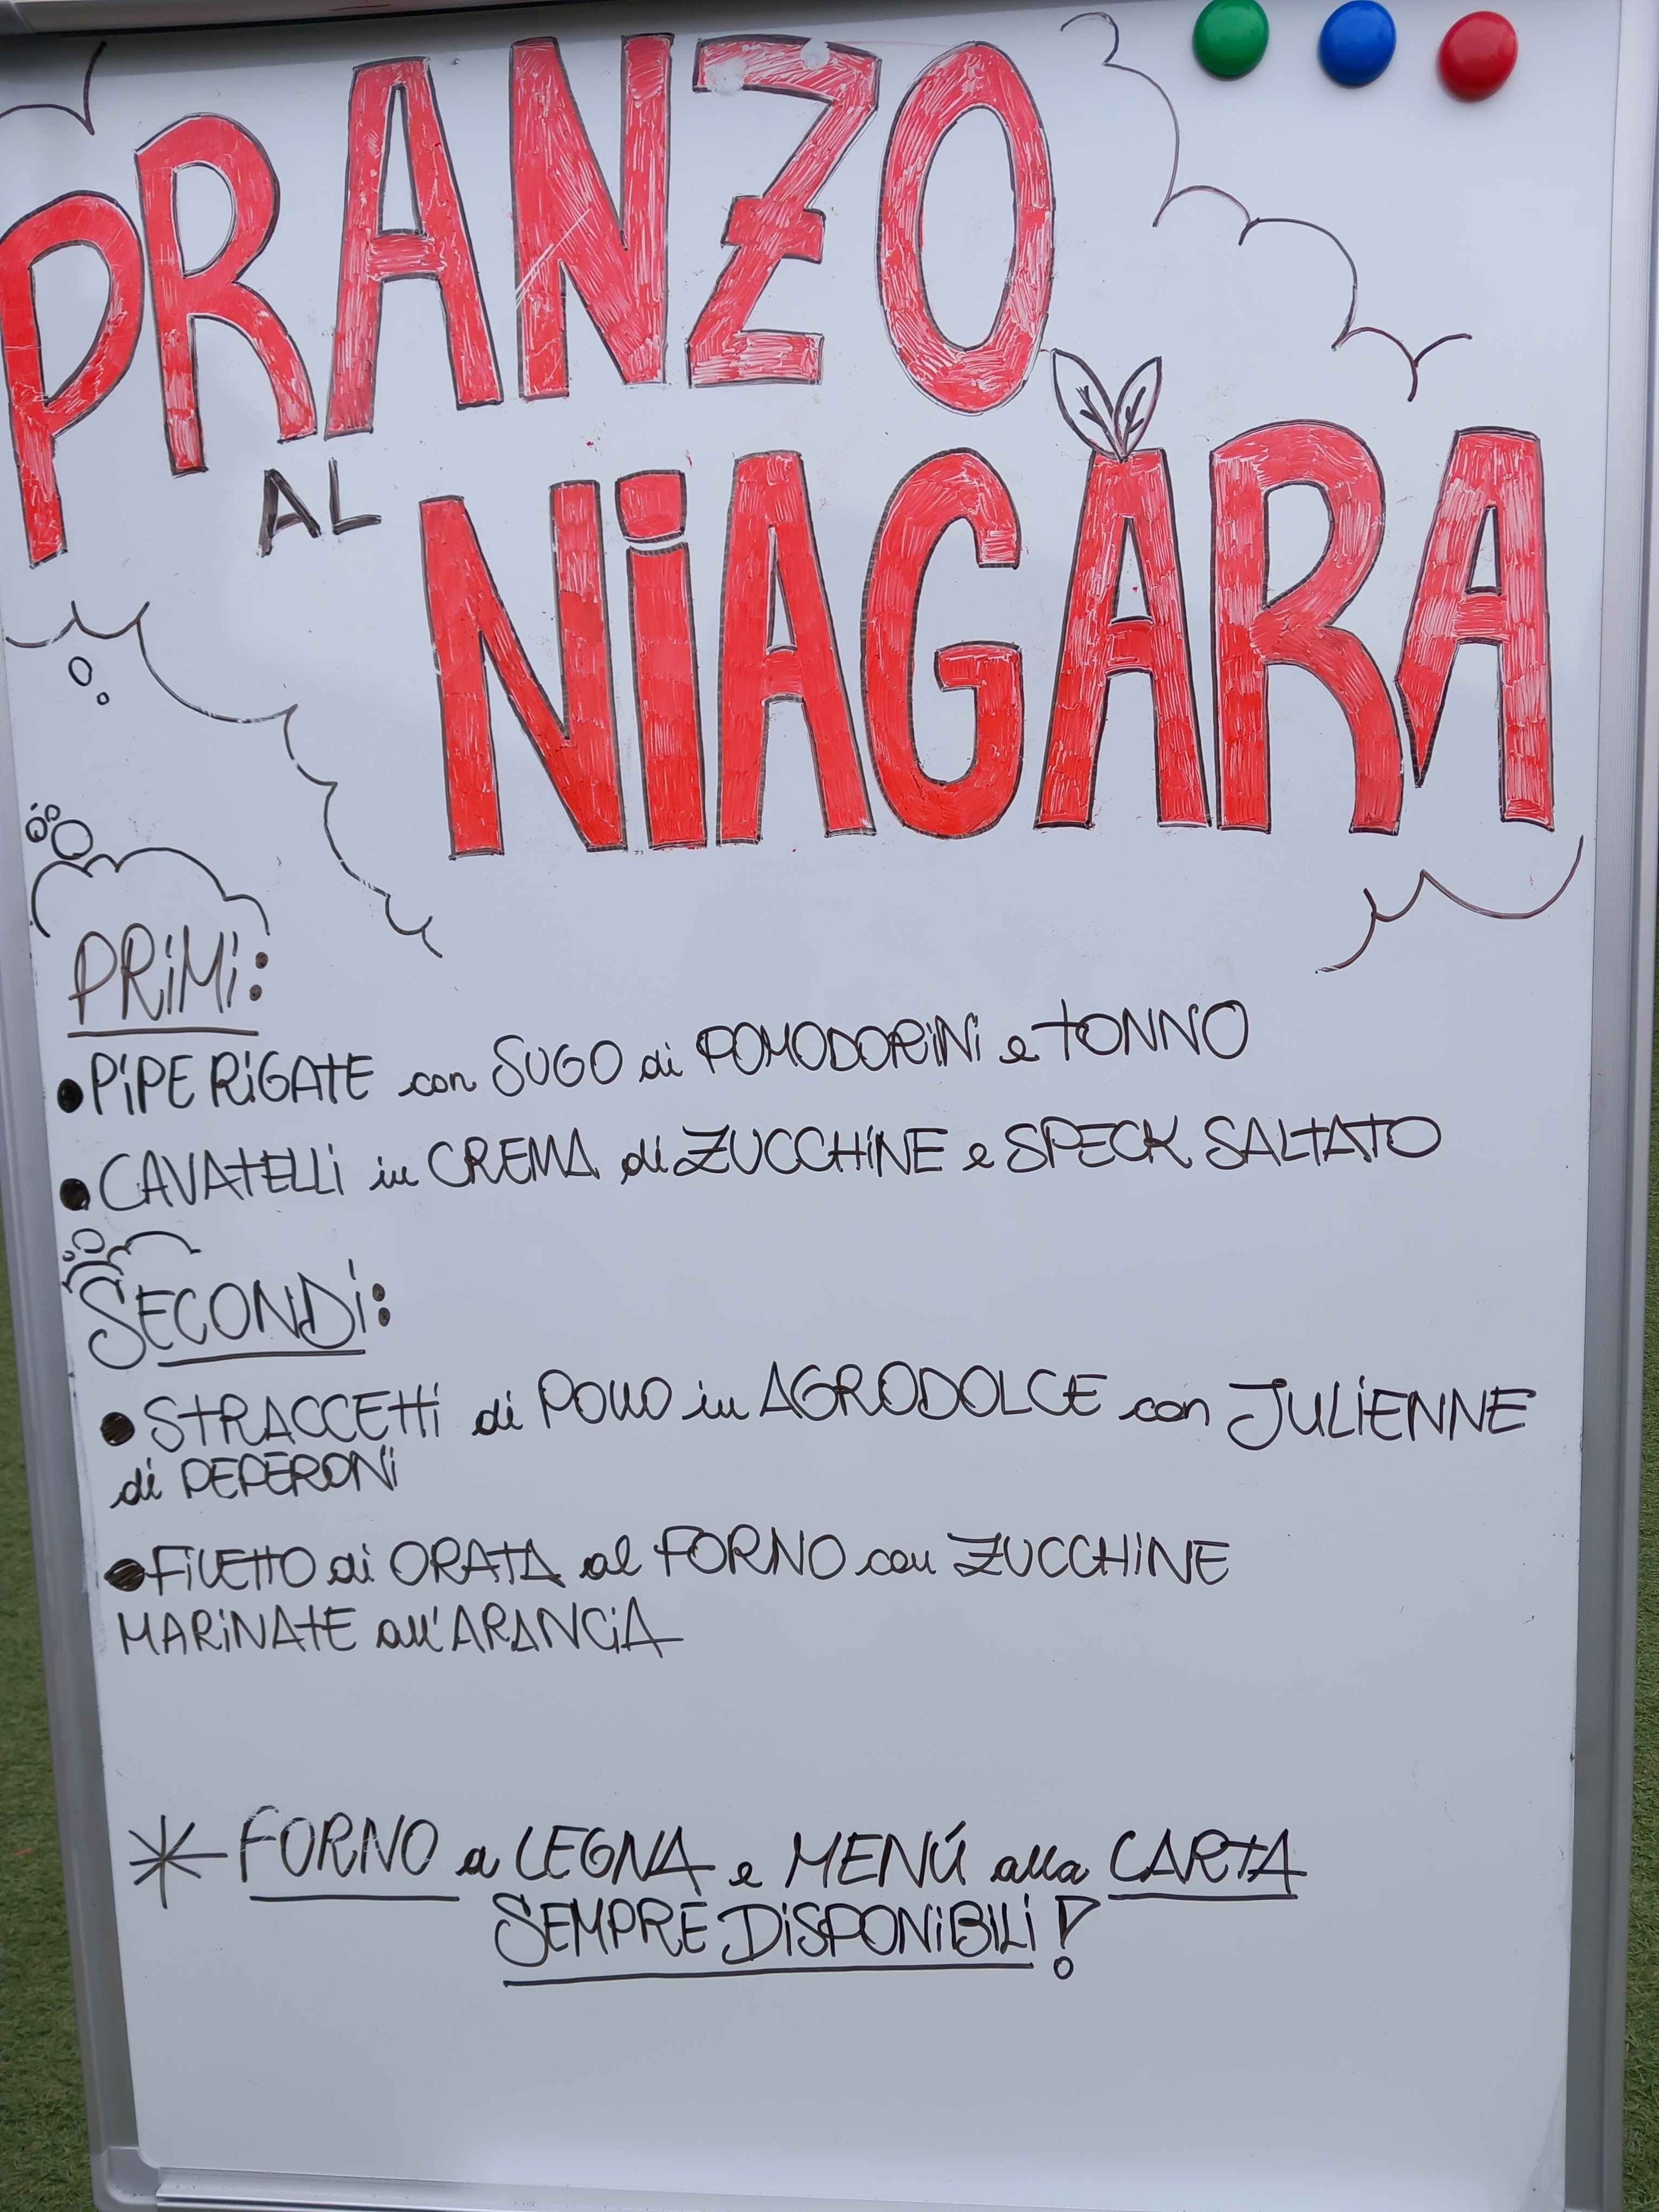 PRANZO
AL
NiAGARA
PRiMi:
• PiPE RiGATE con SUGO di POMODORiNi e tONNO
• CAVAtELLi in CREMA di ZUCCHiNE e SPECK SALtAtO
SECONDi:
• StRACCEtti di POLLO in AGRODOLCE con JULiENNE
di PEPERONi
• FiLEttO di ORAtA al FORNO con ZUCCHiNE
MARiNAtE all'ARANCiA
* FORNO a LEGNA e MENÚ alla CARtA
SEMPRE DiSPONiBiLi!